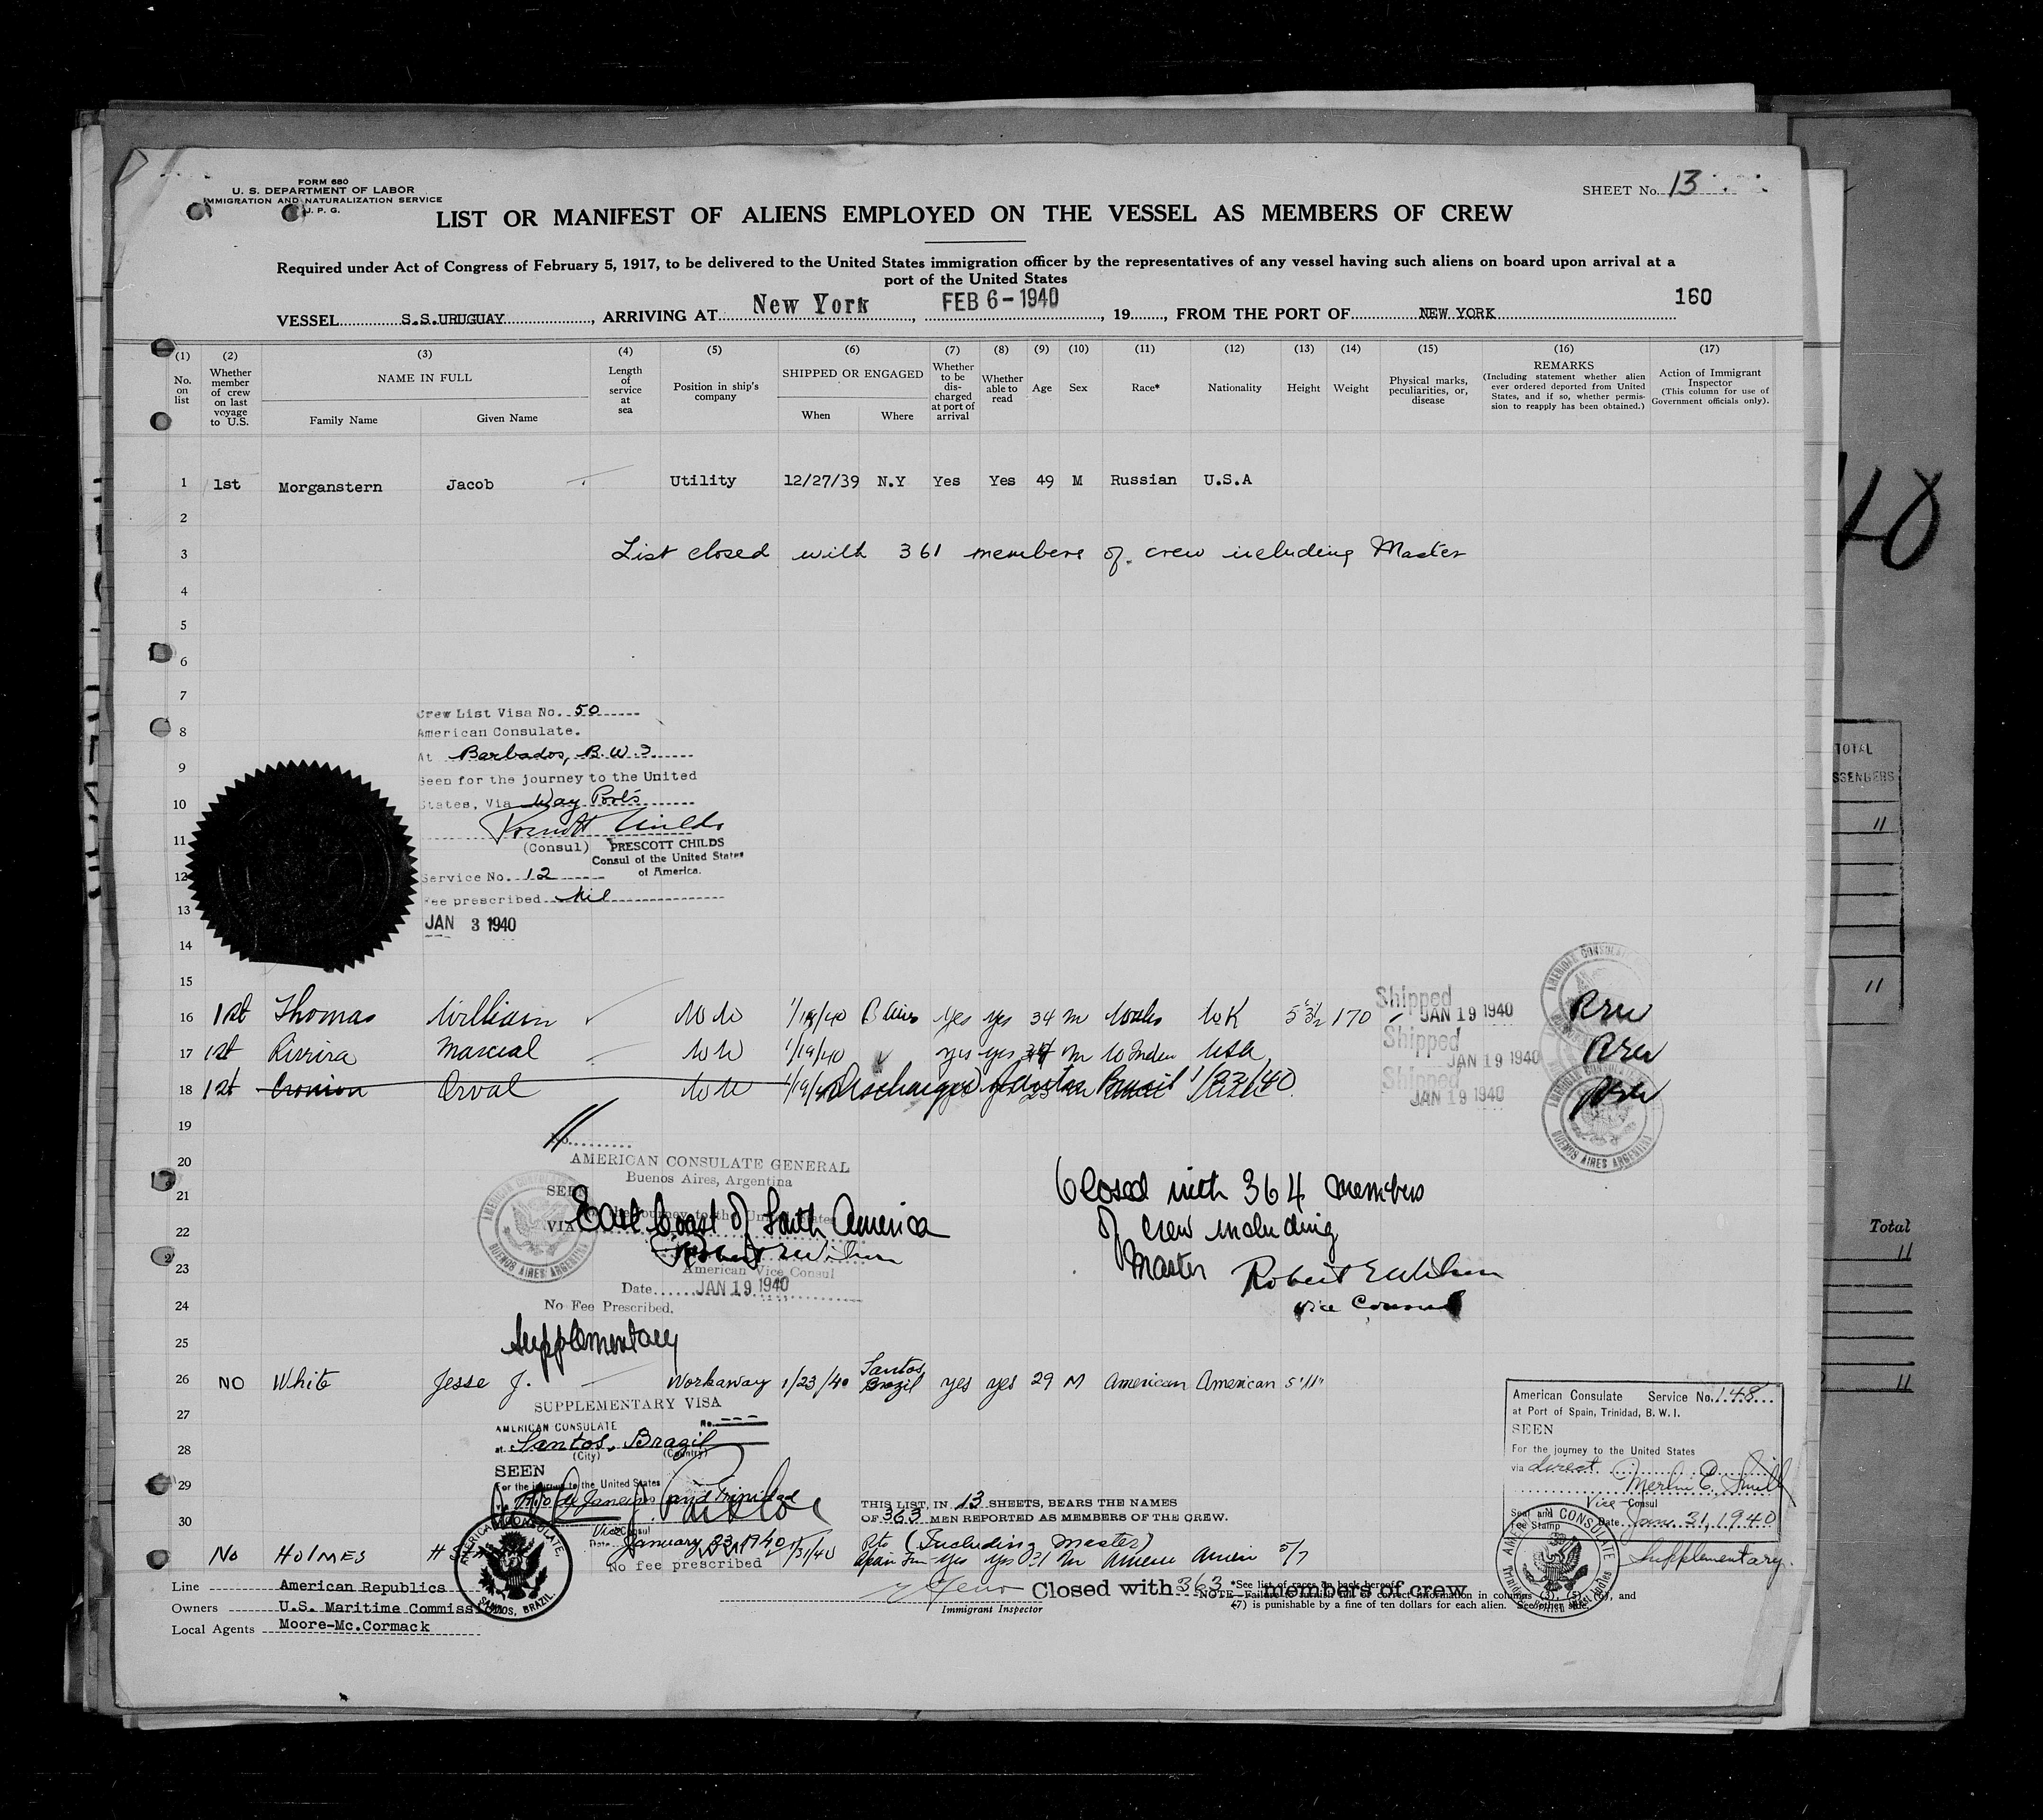 FORM 680
U. S. DEPARTMENT OF LABOR
IMMIGRATION AND NATURALIZATION SERVICE
U. P. G.
SHEET No. 13
LIST OR MANIFEST OF ALIENS EMPLOYED ON THE VESSEL AS MEMBERS OF CREW
Required under Act of Congress of February 5, 1917, to be delivered to the United States immigration officer by the representatives of any vessel having such aliens on board upon arrival at a
port of the United States
160
VESSEL S.S.URUGUAY, ARRIVING AT New York, FEB 6-1940, 19......, FROM THE PORT OF NEW YORK
(1) (2) (3) (4) (5) (6) (7) (8) (9) (10) (11) (12) (13) (14) (15) (16) (17)
No. on list
Whether member of crew on last voyage to U.S.
NAME IN FULL
Family Name
Given Name
Length of service at sea
Position in ship's company
SHIPPED OR ENGAGED
When
Where
Whether to be discharged at port of arrival
Whether able to read
Age
Sex
Race*
Nationality
Height
Weight
Physical marks, peculiarities, or, disease
REMARKS
(Including statement whether alien ever ordered deported from United States, and if so, whether permission to reapply has been obtained.)
Action of Immigrant Inspector
(This column for use of Government officials only).
1 1st Morganstern Jacob Utility 12/27/39 N.Y Yes Yes 49 M Russian U.S.A
2
3 List closed with 361 members of crew including Master
4
5
6
7
Crew List Visa No. 50
8 American Consulate.
At Barbados, B.W.I.
9 Seen for the journey to the United
10 States, Via Way Ports
11 (Consul) PRESCOTT CHILDS
Consul of the United States
of America.
12 Service No. 12
Fee prescribed Nil
13 JAN 3 1940
14
15
16 1st Thomas William 1/19/40 B Aires yes yes 34 m 5 3½ 170 Shipped JAN 19 1940
17 1st Marcial 1/19/40 yes yes m USA Shipped JAN 19 1940
18 1st Orval Discharged Santos Brazil 1/23/40 Shipped JAN 19 1940
19
No.
20 AMERICAN CONSULATE GENERAL
Buenos Aires, Argentina
21 SEEN
For the journey to the United States
22 VIA East Coast of South America
Robert E Wilson
23 American Vice Consul
Date JAN 19 1940
24 No Fee Prescribed.
Closed with 364 members
of crew including
Master Robert E Wilson
Vice Consul
25 Supplementary
26 NO White Jesse J. Workaway 1/23/40 Santos Brazil yes yes 29 M American American 5'11"
SUPPLEMENTARY VISA
27 AMERICAN CONSULATE No. ---
28 at Santos, Brazil
(City) (Country)
SEEN
29 For the journey to the United States
Rio de Janeiro and Trinidad
30
Vice Consul
Date January 23, 1940
No fee prescribed
THIS LIST, IN 13 SHEETS, BEARS THE NAMES
OF 363 MEN REPORTED AS MEMBERS OF THE CREW.
(Including Master)
American Consulate Service No. 148
at Port of Spain, Trinidad, B. W. I.
SEEN
For the journey to the United States
via direct
Vice Consul
Seal and
Fee Stamp
Date Jan. 31, 1940
Supplementary.
No HOLMES 1/31/40 yes yes 5/7
AMERICAN CONSULATE,
SANTOS, BRAZIL
AMERICAN CONSULATE
BUENOS AIRES ARGENTINA
Line American Republics
Owners U.S. Maritime Commission
Local Agents Moore-Mc.Cormack
Immigrant Inspector
Closed with 363 members of crew
*See list of races on back hereof.
NOTE—Failure to furnish full or correct information in columns (3), (5), (6), and
(7) is punishable by a fine of ten dollars for each alien. See other side.
TOTAL
Total